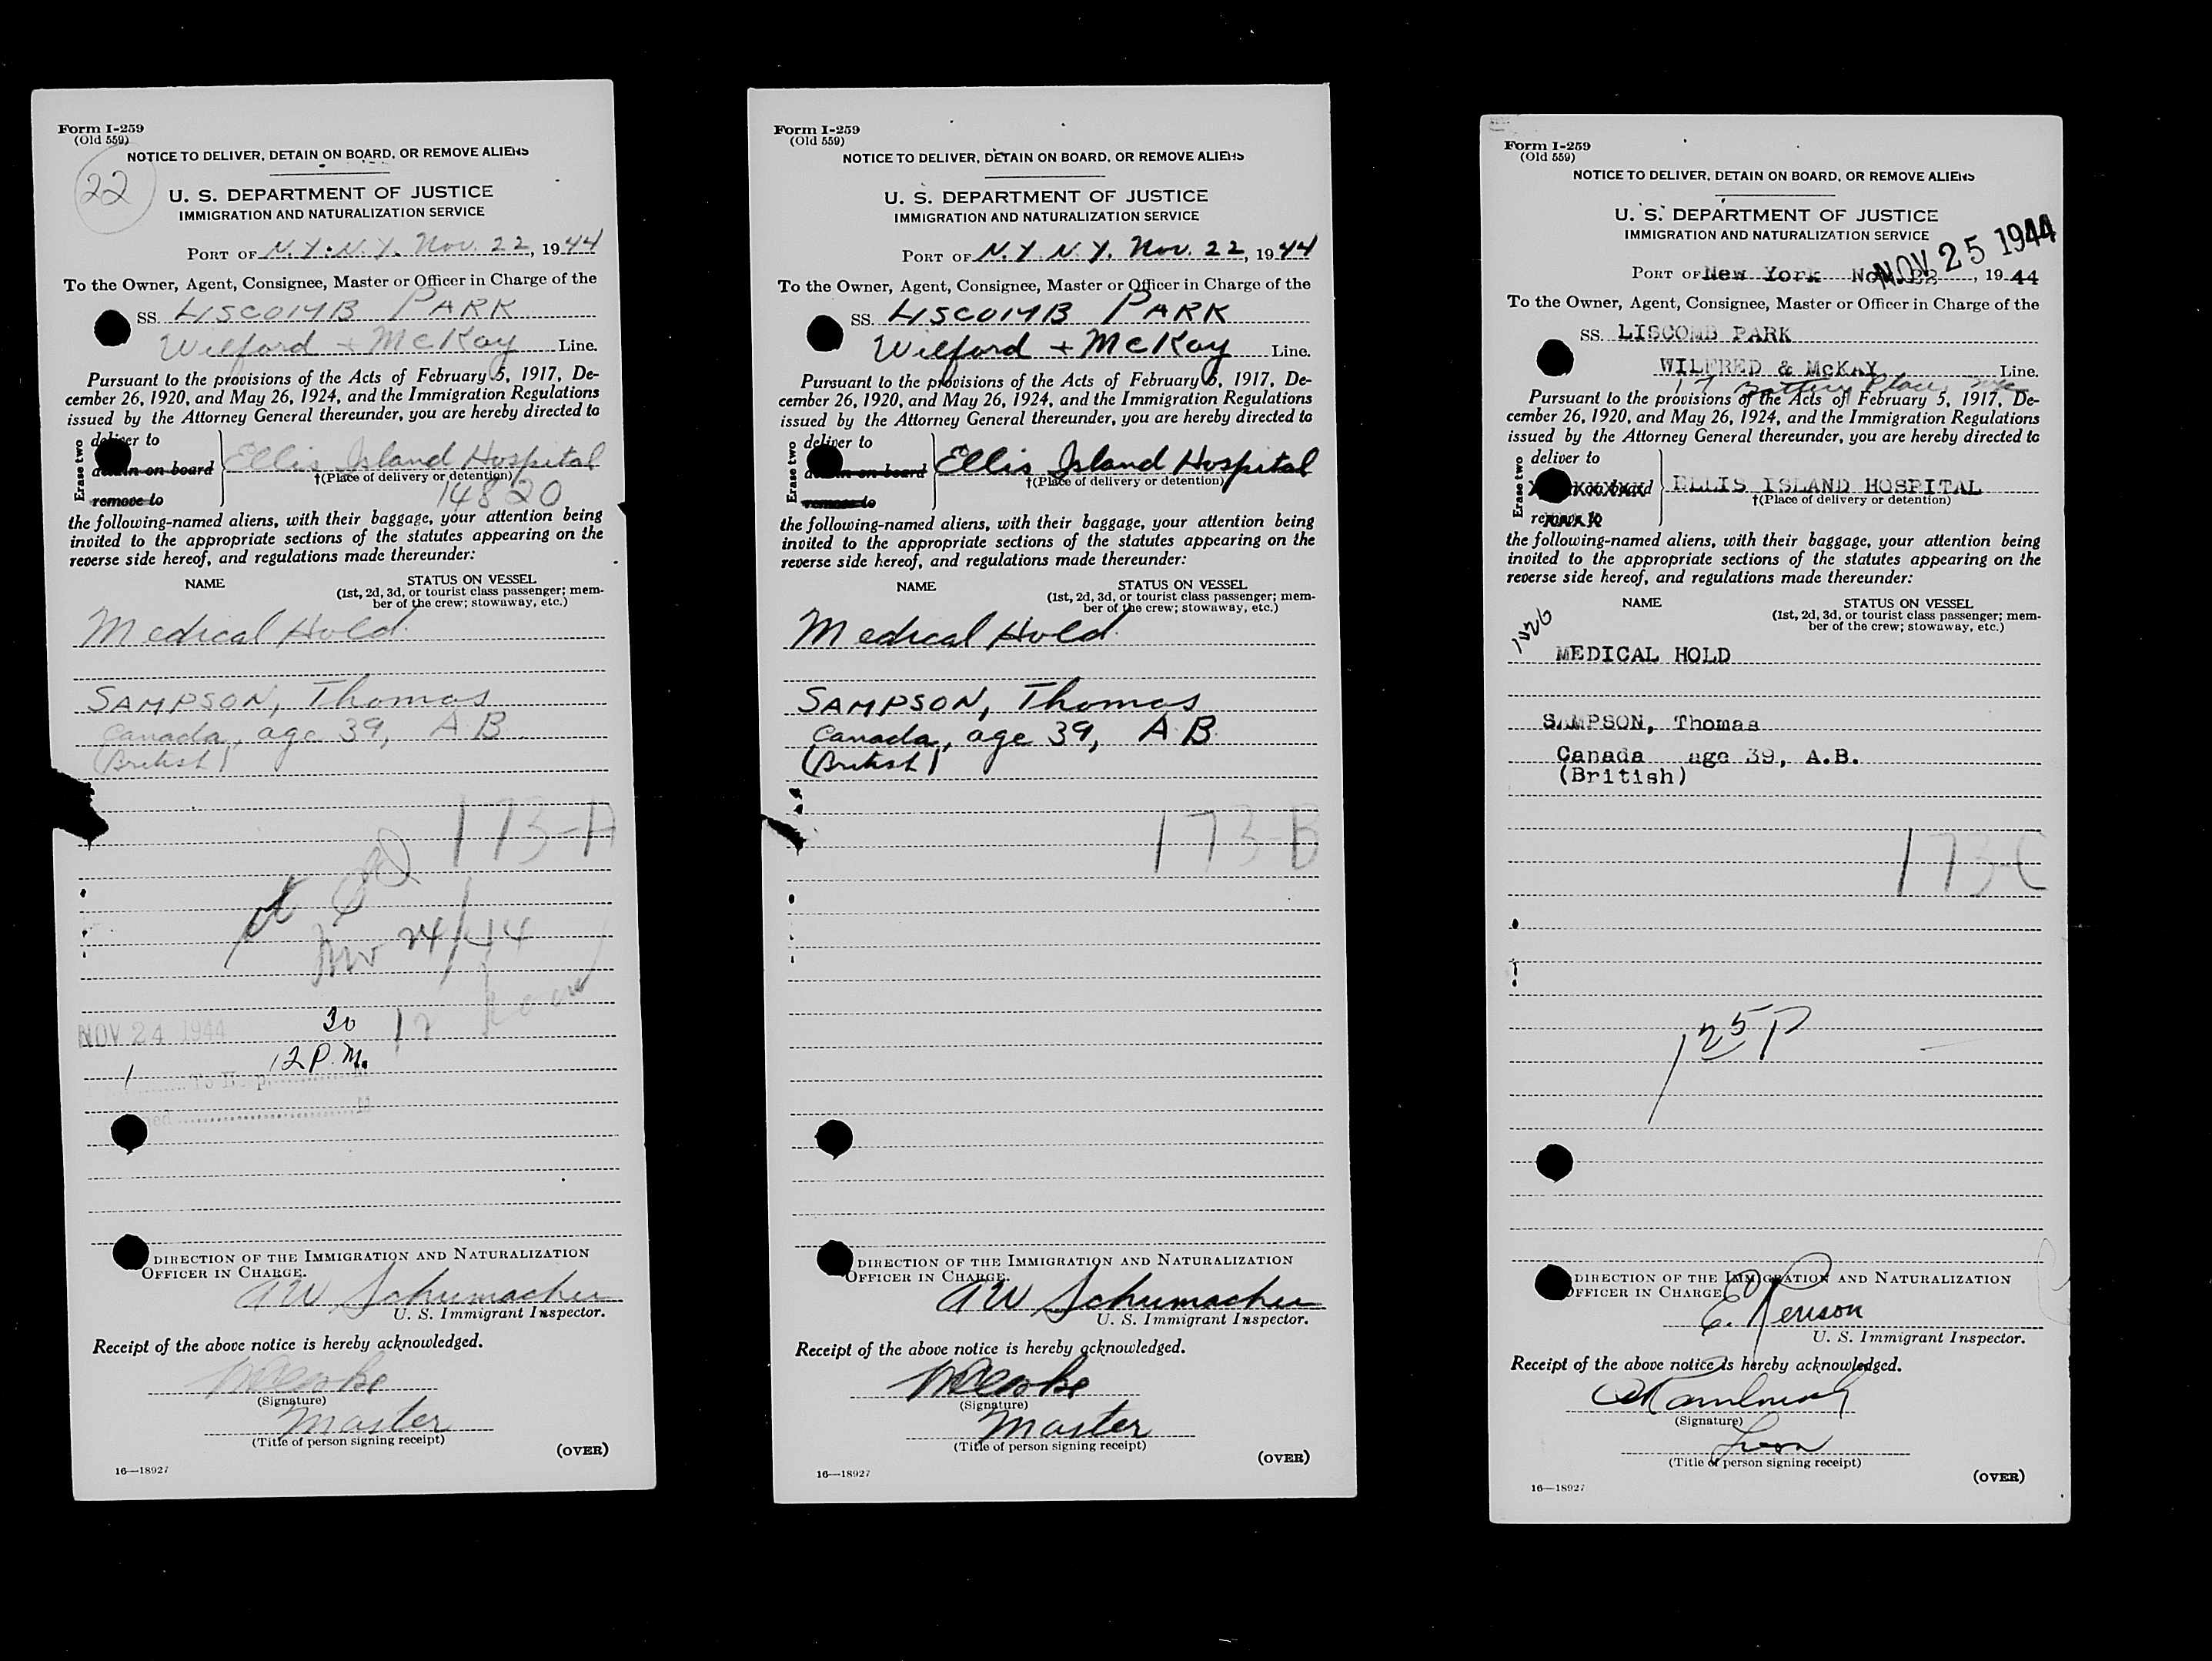 Form I-259
(Old 559)
NOTICE TO DELIVER, DETAIN ON BOARD, OR REMOVE ALIENS
22
U. S. DEPARTMENT OF JUSTICE
IMMIGRATION AND NATURALIZATION SERVICE
PORT OF N.Y. N.Y. Nov. 22, 1944
To the Owner, Agent, Consignee, Master or Officer in Charge of the
SS. LISCOMB PARK
Wilford + McKay Line.
Pursuant to the provisions of the Acts of February 5, 1917, De-
cember 26, 1920, and May 26, 1924, and the Immigration Regulations
issued by the Attorney General thereunder, you are hereby directed to
Erase two
deliver to
detain on board
remove to
Ellis Island Hospital
†(Place of delivery or detention)
14820
the following-named aliens, with their baggage, your attention being
invited to the appropriate sections of the statutes appearing on the
reverse side hereof, and regulations made thereunder:
NAME
STATUS ON VESSEL
(1st, 2d, 3d, or tourist class passenger; mem-
ber of the crew; stowaway, etc.)
Medical Hold
SAMPSON, Thomas
Canada, age 39, A.B.
(British)
173-A
Nov 24/44
NOV 24 1944
30
12 P.M.
1 To Hosp.
DIRECTION OF THE IMMIGRATION AND NATURALIZATION
OFFICER IN CHARGE.
AW Schumacher
U. S. Immigrant Inspector.
Receipt of the above notice is hereby acknowledged.
(Signature)
Master
(Title of person signing receipt)
(OVER)
16—18927
Form I-259
(Old 559)
NOTICE TO DELIVER, DETAIN ON BOARD, OR REMOVE ALIENS
U. S. DEPARTMENT OF JUSTICE
IMMIGRATION AND NATURALIZATION SERVICE
PORT OF N.Y. N.Y. Nov. 22, 1944
To the Owner, Agent, Consignee, Master or Officer in Charge of the
SS. LISCOMB PARK
Wilford + McKay Line.
Pursuant to the provisions of the Acts of February 5, 1917, De-
cember 26, 1920, and May 26, 1924, and the Immigration Regulations
issued by the Attorney General thereunder, you are hereby directed to
Erase two
deliver to
detain on board
remove to
Ellis Island Hospital
†(Place of delivery or detention)
the following-named aliens, with their baggage, your attention being
invited to the appropriate sections of the statutes appearing on the
reverse side hereof, and regulations made thereunder:
NAME
STATUS ON VESSEL
(1st, 2d, 3d, or tourist class passenger; mem-
ber of the crew; stowaway, etc.)
Medical Hold
SAMPSON, Thomas
Canada, age 39, A.B.
(British)
173-B
DIRECTION OF THE IMMIGRATION AND NATURALIZATION
OFFICER IN CHARGE.
AW Schumacher
U. S. Immigrant Inspector.
Receipt of the above notice is hereby acknowledged.
(Signature)
Master
(Title of person signing receipt)
(OVER)
16—18927
Form I-259
(Old 559)
NOTICE TO DELIVER, DETAIN ON BOARD, OR REMOVE ALIENS
U. S. DEPARTMENT OF JUSTICE
IMMIGRATION AND NATURALIZATION SERVICE
NOV 25 1944
PORT OF New York Nov. 22, 1944
To the Owner, Agent, Consignee, Master or Officer in Charge of the
SS. LISCOMB PARK
WILFRED & McKAY Line.
17 Battery Place, NYC
Pursuant to the provisions of the Acts of February 5, 1917, De-
cember 26, 1920, and May 26, 1924, and the Immigration Regulations
issued by the Attorney General thereunder, you are hereby directed to
Erase two
deliver to
detain on board
remove to
ELLIS ISLAND HOSPITAL
†(Place of delivery or detention)
the following-named aliens, with their baggage, your attention being
invited to the appropriate sections of the statutes appearing on the
reverse side hereof, and regulations made thereunder:
NAME
STATUS ON VESSEL
(1st, 2d, 3d, or tourist class passenger; mem-
ber of the crew; stowaway, etc.)
MEDICAL HOLD
SAMPSON, Thomas
Canada age 39, A.B.
(British)
173-C
1 25 P
DIRECTION OF THE IMMIGRATION AND NATURALIZATION
OFFICER IN CHARGE.
U. S. Immigrant Inspector.
Receipt of the above notice is hereby acknowledged.
(Signature)
(Title of person signing receipt)
(OVER)
16—18927